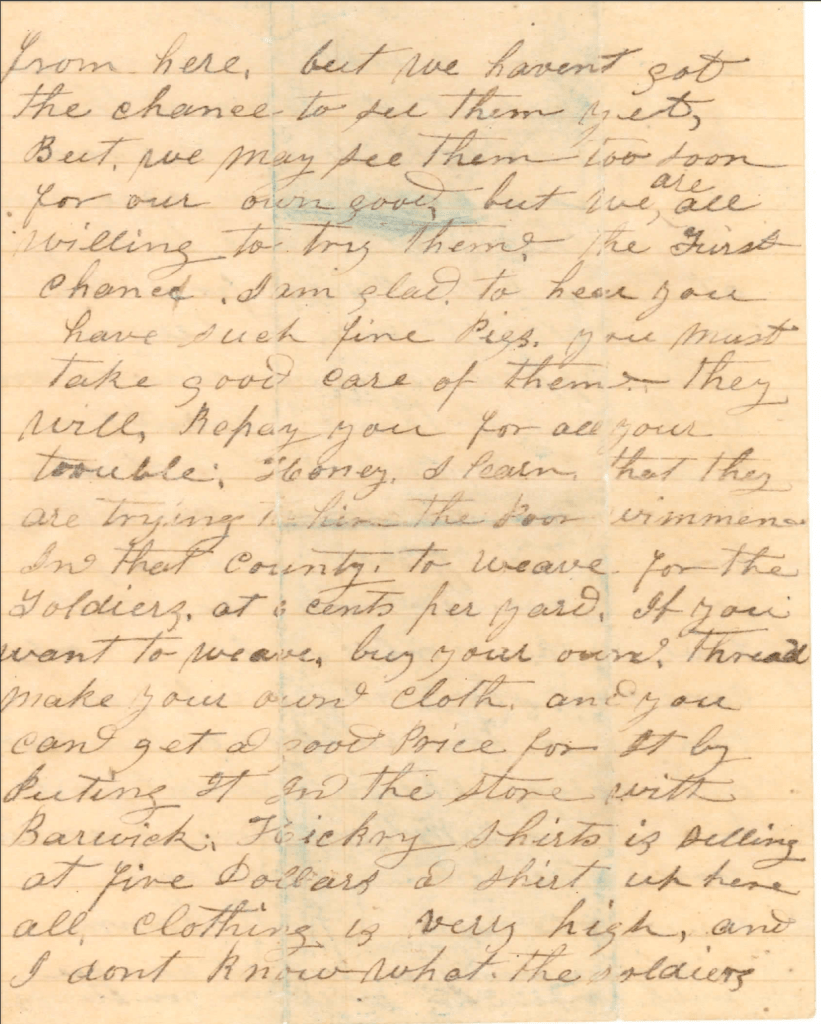 from here, but we havent got
the chance to see them yet,
But, we may see them too soon
for our own good, but we, are all
willing to try them, the First
chance, I am glad, to hear you
have such fine Pigs, you must
take good care of them they
will, Repay you for all your
trouble, Honey, I learn, that they
are trying to hire the Poor wimmen
In that county, to weave for the
Soldiers, at 6 cents per yard, If you
want to weave, buy your own, thread
make your own cloth, and you
can get a good Price for It by
Puting It In the store with
Barwick, Hickry shirts is selling
at five Dollars a shirt up here
all, clothing is very high, and
I dont know what the soldiers